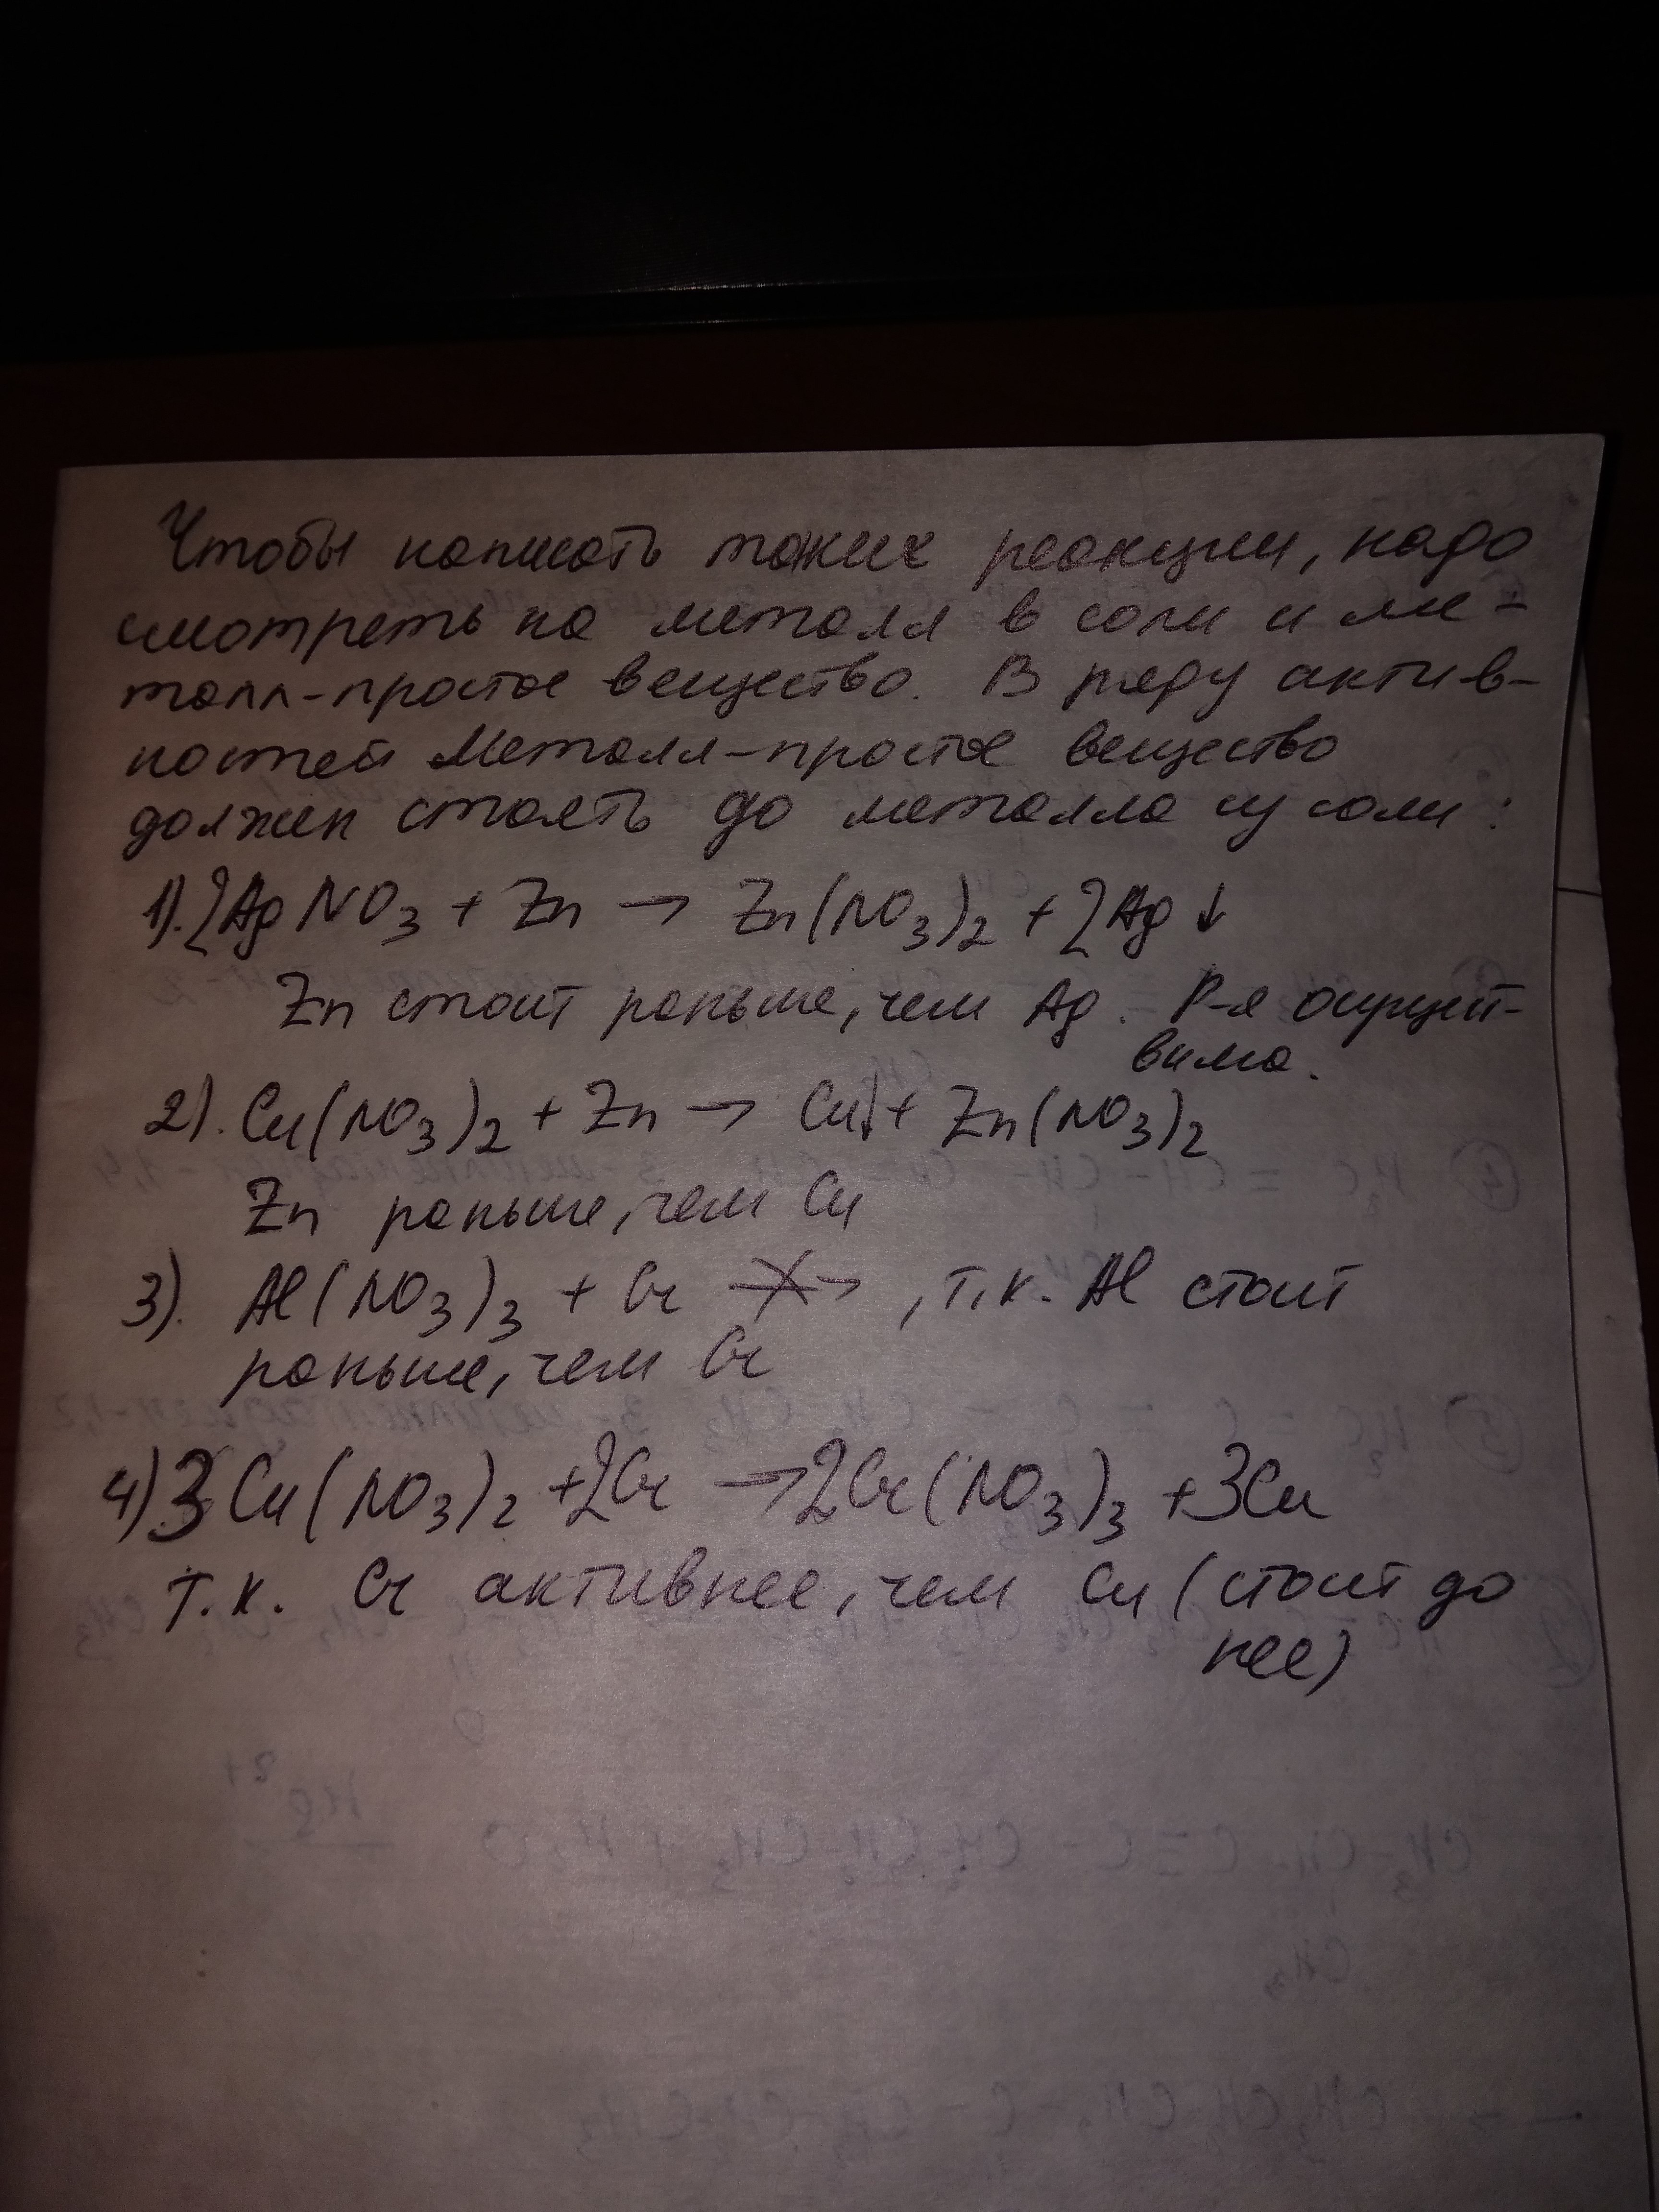 Чтобы написать таких реакции, надо
смотреть на металл в соли и ме-
талл-простое вещество. В ряду актив-
ностей металл-простое вещество
должен стоять до металла из соли:
1). 2AgNO₃ + Zn → Zn(NO₃)₂ + 2Ag↓
Zn стоит раньше, чем Ag. Р-я осущест-
вима.
2). Cu(NO₃)₂ + Zn → Cu↓ + Zn(NO₃)₂
Zn раньше, чем Cu
3). Al(NO₃)₃ + Cr ↛ , т.к. Al стоит
раньше, чем Cr
4) 3Cu(NO₃)₂ + 2Cr → 2Cr(NO₃)₃ + 3Cu
т.к. Cr активнее, чем Cu (стоит до
нее)